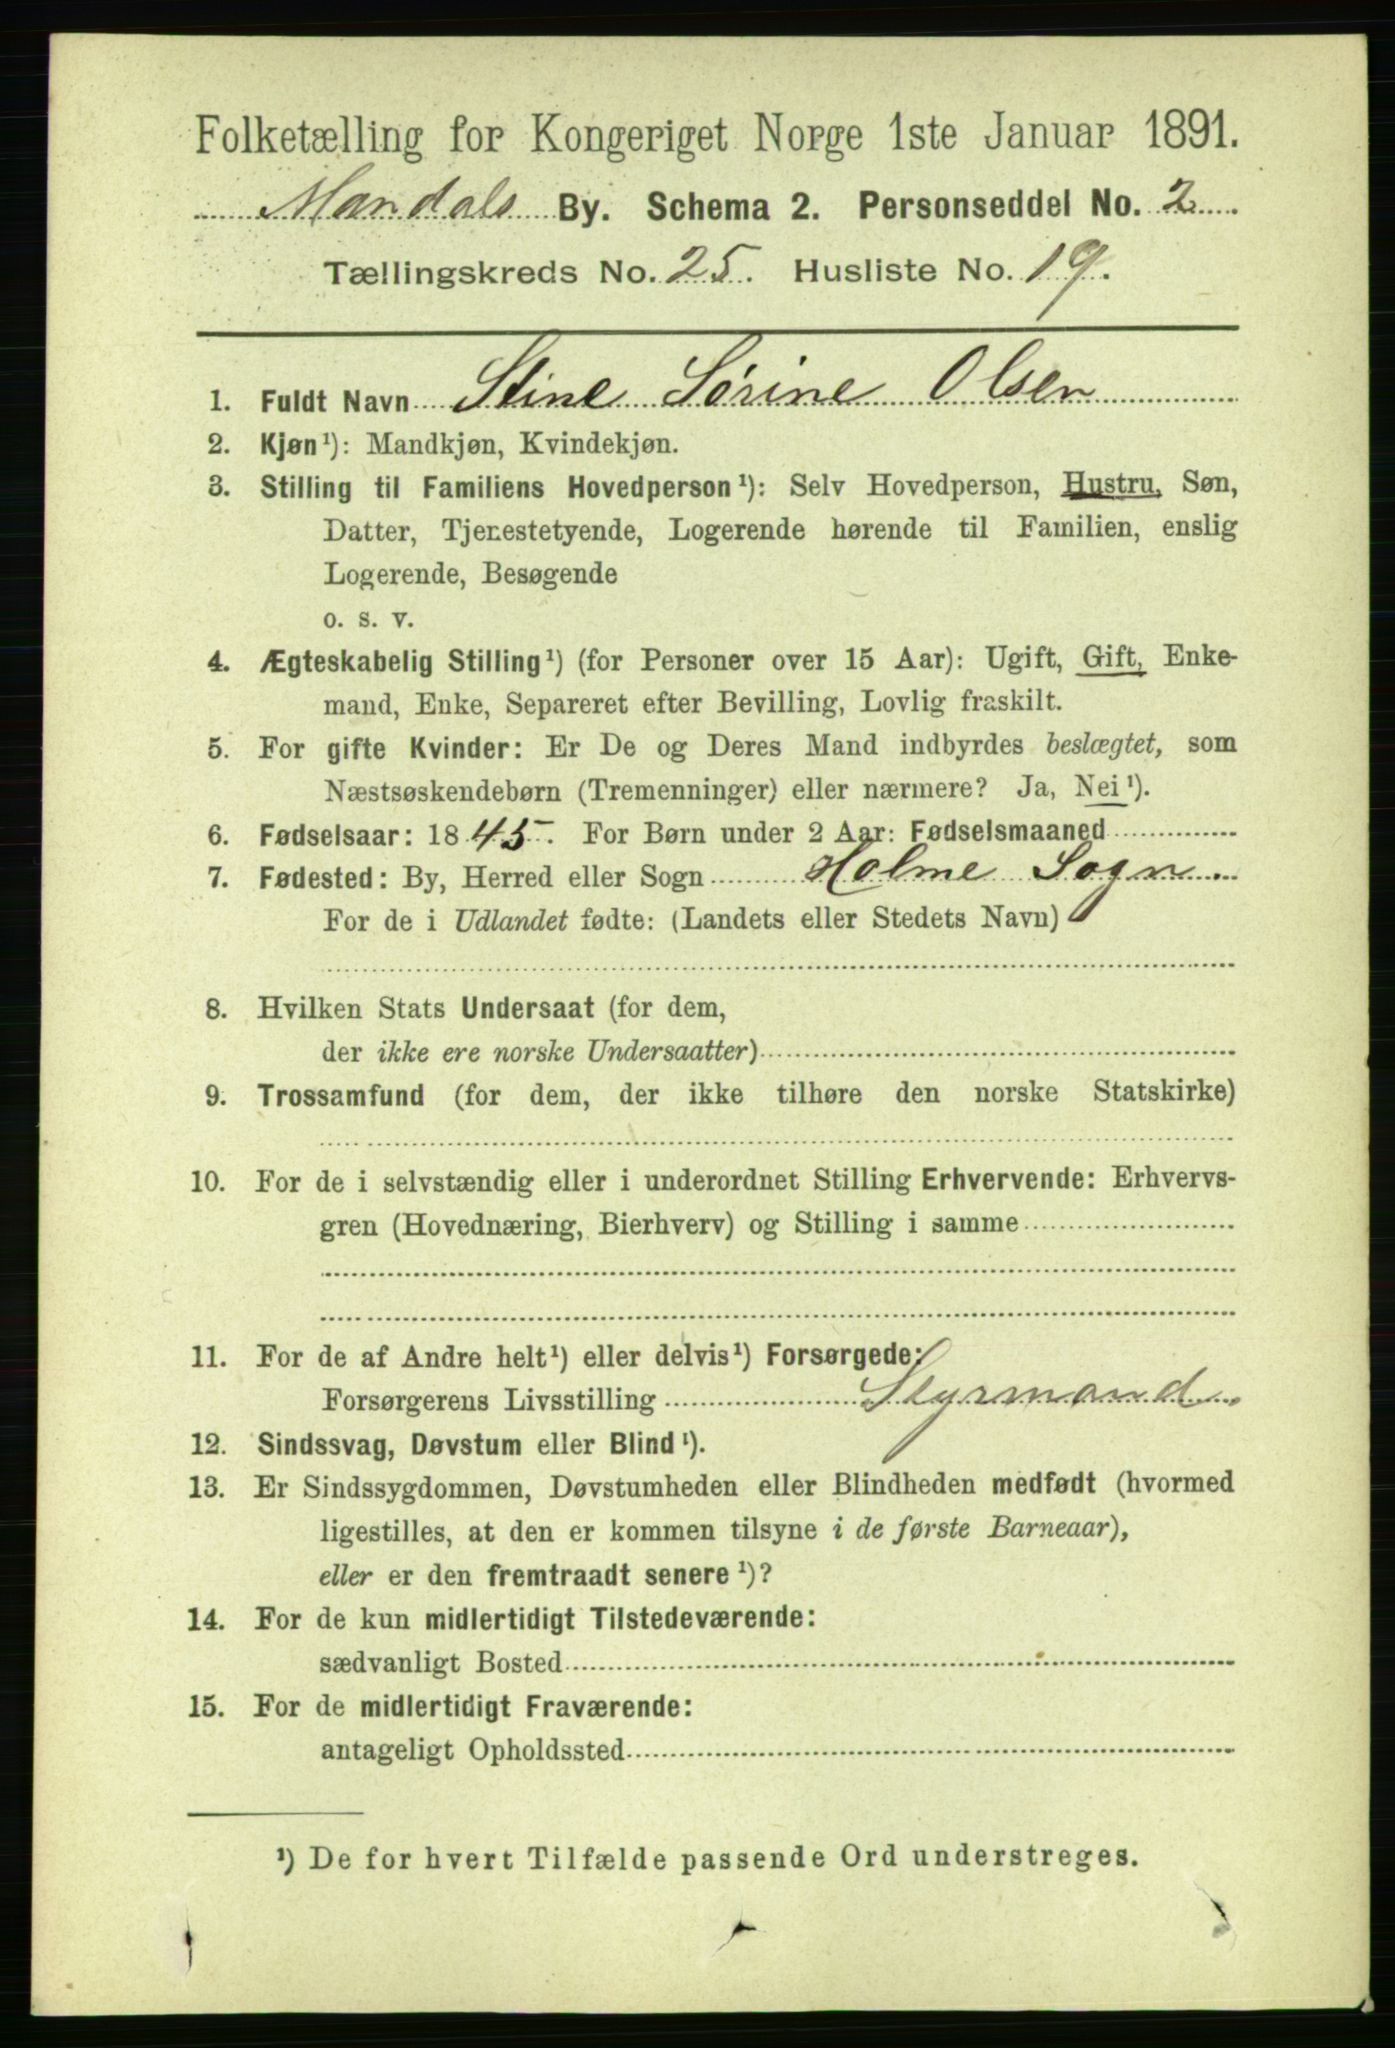 Folketælling for Kongeriget Norge 1ste Januar 1891.
Mandals By. Schema 2. Personseddel No. 2
Tællingskreds No. 25. Husliste No. 19.
1. Fuldt Navn Stine Sørine Olsen
2. Kjøn¹): Mandkjøn, Kvindekjøn.
3. Stilling til Familiens Hovedperson¹): Selv Hovedperson, Hustru, Søn,
Datter, Tjenestetyende, Logerende hørende til Familien, enslig
Logerende, Besøgende
o. s. v.
4. Ægteskabelig Stilling¹) (for Personer over 15 Aar): Ugift, Gift, Enke-
mand, Enke, Separeret efter Bevilling, Lovlig fraskilt.
5. For gifte Kvinder: Er De og Deres Mand indbyrdes beslægtet, som
Næstsøskendebørn (Tremenninger) eller nærmere? Ja, Nei¹).
6. Fødselsaar: 1845. For Børn under 2 Aar: Fødselsmaaned
7. Fødested: By, Herred eller Sogn Holme Sogn
For de i Udlandet fødte: (Landets eller Stedets Navn)
8. Hvilken Stats Undersaat (for dem,
der ikke ere norske Undersaatter)
9. Trossamfund (for dem, der ikke tilhøre den norske Statskirke)
10. For de i selvstændig eller i underordnet Stilling Erhvervende: Erhvervs-
gren (Hovednæring, Bierhverv) og Stilling i samme
11. For de af Andre helt¹) eller delvis¹) Forsørgede:
Forsørgerens Livsstilling Styrmand
12. Sindssvag, Døvstum eller Blind¹).
13. Er Sindssygdommen, Døvstumheden eller Blindheden medfødt (hvormed
ligestilles, at den er kommen tilsyne i de første Barneaar),
eller er den fremtraadt senere¹)?
14. For de kun midlertidigt Tilstedeværende:
sædvanligt Bosted
15. For de midlertidigt Fraværende:
antageligt Opholdssted
¹) De for hvert Tilfælde passende Ord understreges.